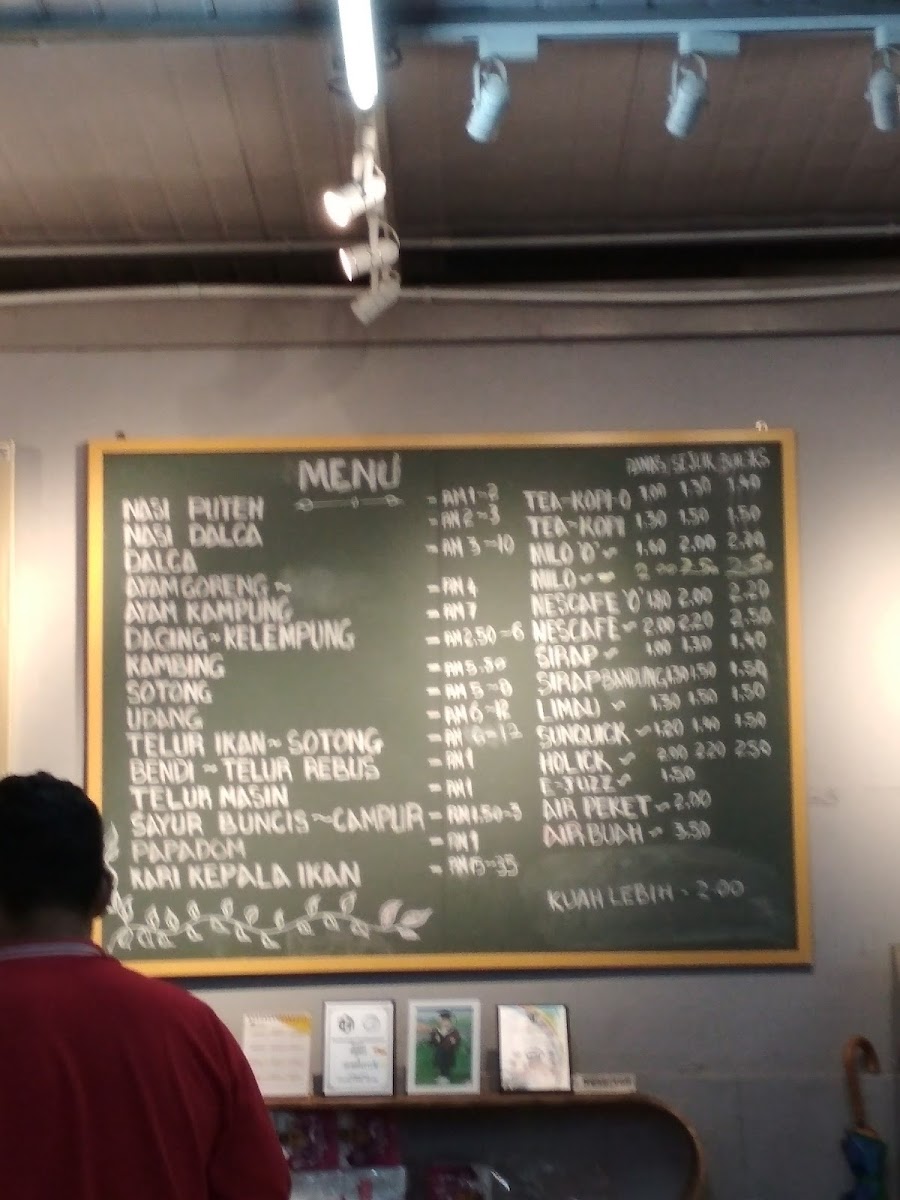 MENU
NASI PUTEH = RM1-2
NASI DALCA = RM2-3
DALCA = RM3-10
AYAM GORENG ~ = RM4
AYAM KAMPUNG = RM7
DAGING ~ KELEMPUNG = RM2.50-6
KAMBING = RM5.50
SOTONG = RM5-8
UDANG = RM6-12
TELUR IKAN ~ SOTONG = RM
BENDI ~ TELUR REBUS = RM1
TELUR MASIN = RM1
SAYUR BUNCIS ~ CAMPUR = RM1.50-3
PAPADOM = RM1
KARI KEPALA IKAN = RM15-35
PANAS SEJUK BUNGKUS
TEA-KOPI-O 1.00 1.30 1.40
TEA-KOPI 1.30 1.50 1.50
MILO 'O' ~ 2.00 2.20
MILO ~ 2.50 2.50
NESCAFE 'O' 1.80 2.00 2.20
NESCAFE ~ 2.00 2.20 2.50
SIRAP ~ 1.00 1.30 1.40
SIRAP BANDUNG 1.30 1.50 1.50
LIMAU ~ 1.30 1.50 1.50
SUNQUICK ~ 1.20 1.40 1.50
HOLICK ~ 2.00 2.20 2.50
E-JUZZ ~ 1.50
AIR PEKET ~ 2.00
AIR BUAH ~ 3.50
KUAH LEBIH - 2.00